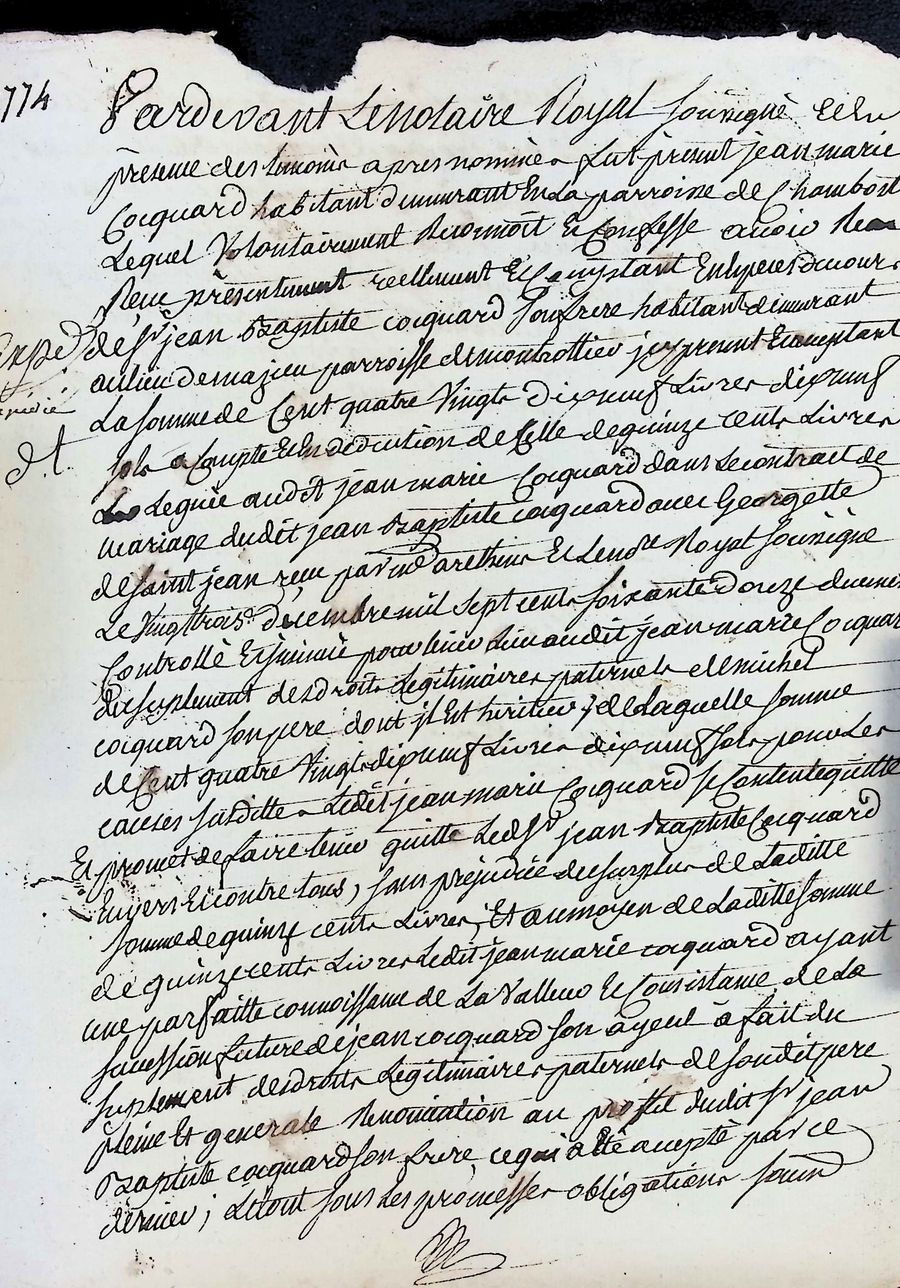 1774
Pardevant Le notaire Royal Soussigné et En
présence des temoins apres nommés fut présent jean marie
Cocquard habitant demeurant En La parroisse de Chambost
Lequel Volontairement Reconnoit et Confesse avoir
Reçu présentement reellement et Comptant En Especes de cours
de Sr jean Baptiste cocquard son frere habitant demeurant
au lieu de mazieu parroisse de montrottier jcy present Et aceptant
La somme de Cent quatre Vingt dixneuf Livres dixneuf
sols a Compte et En déduction de Celle de quinze cents Livres
Leguée audit jean marie Cocquard dans Le contract de
mariage dudit jean Baptiste cocquard avec Georgette
de saint jean reçu par me arethins et Le nore Royal soussigné
Le Vingttrois decembre mil sept cents soixante douze duement
Controllé Et jnsinué pour tenir Lieu audit jean marie Cocquard
du suplement des droits Legitimaires paternels de michel
cocquard son pere dont jl Est heritier; de Laquelle somme
de Cent quatre Vingt dixneuf Livres dixneuf sols pour Les
causes susdittes Ledit jean marie Cocquard se Contente quitte
Et promet de faire tenir quitte Led Sr jean Baptiste Cocquard
Envers Et contre tous, sans prejudice du surplus de Laditte
somme de quinze cents Livres; Et au moyen de Laditte somme
de quinze cents Livres Ledit jean marie cocquard ayant
une parfaitte connoissance de La Valleur et Consistance de La
sucession future de jean cocquard son ayeul à fait du
suplement des droits Legitimaires paternels de sondit pere
pleine Et generale Renonciation au proffit dudit Sr jean
Baptiste cocquard son frere, ce qui a été acepté par ce
dernier; Letout sous Les promesses obligations soumd